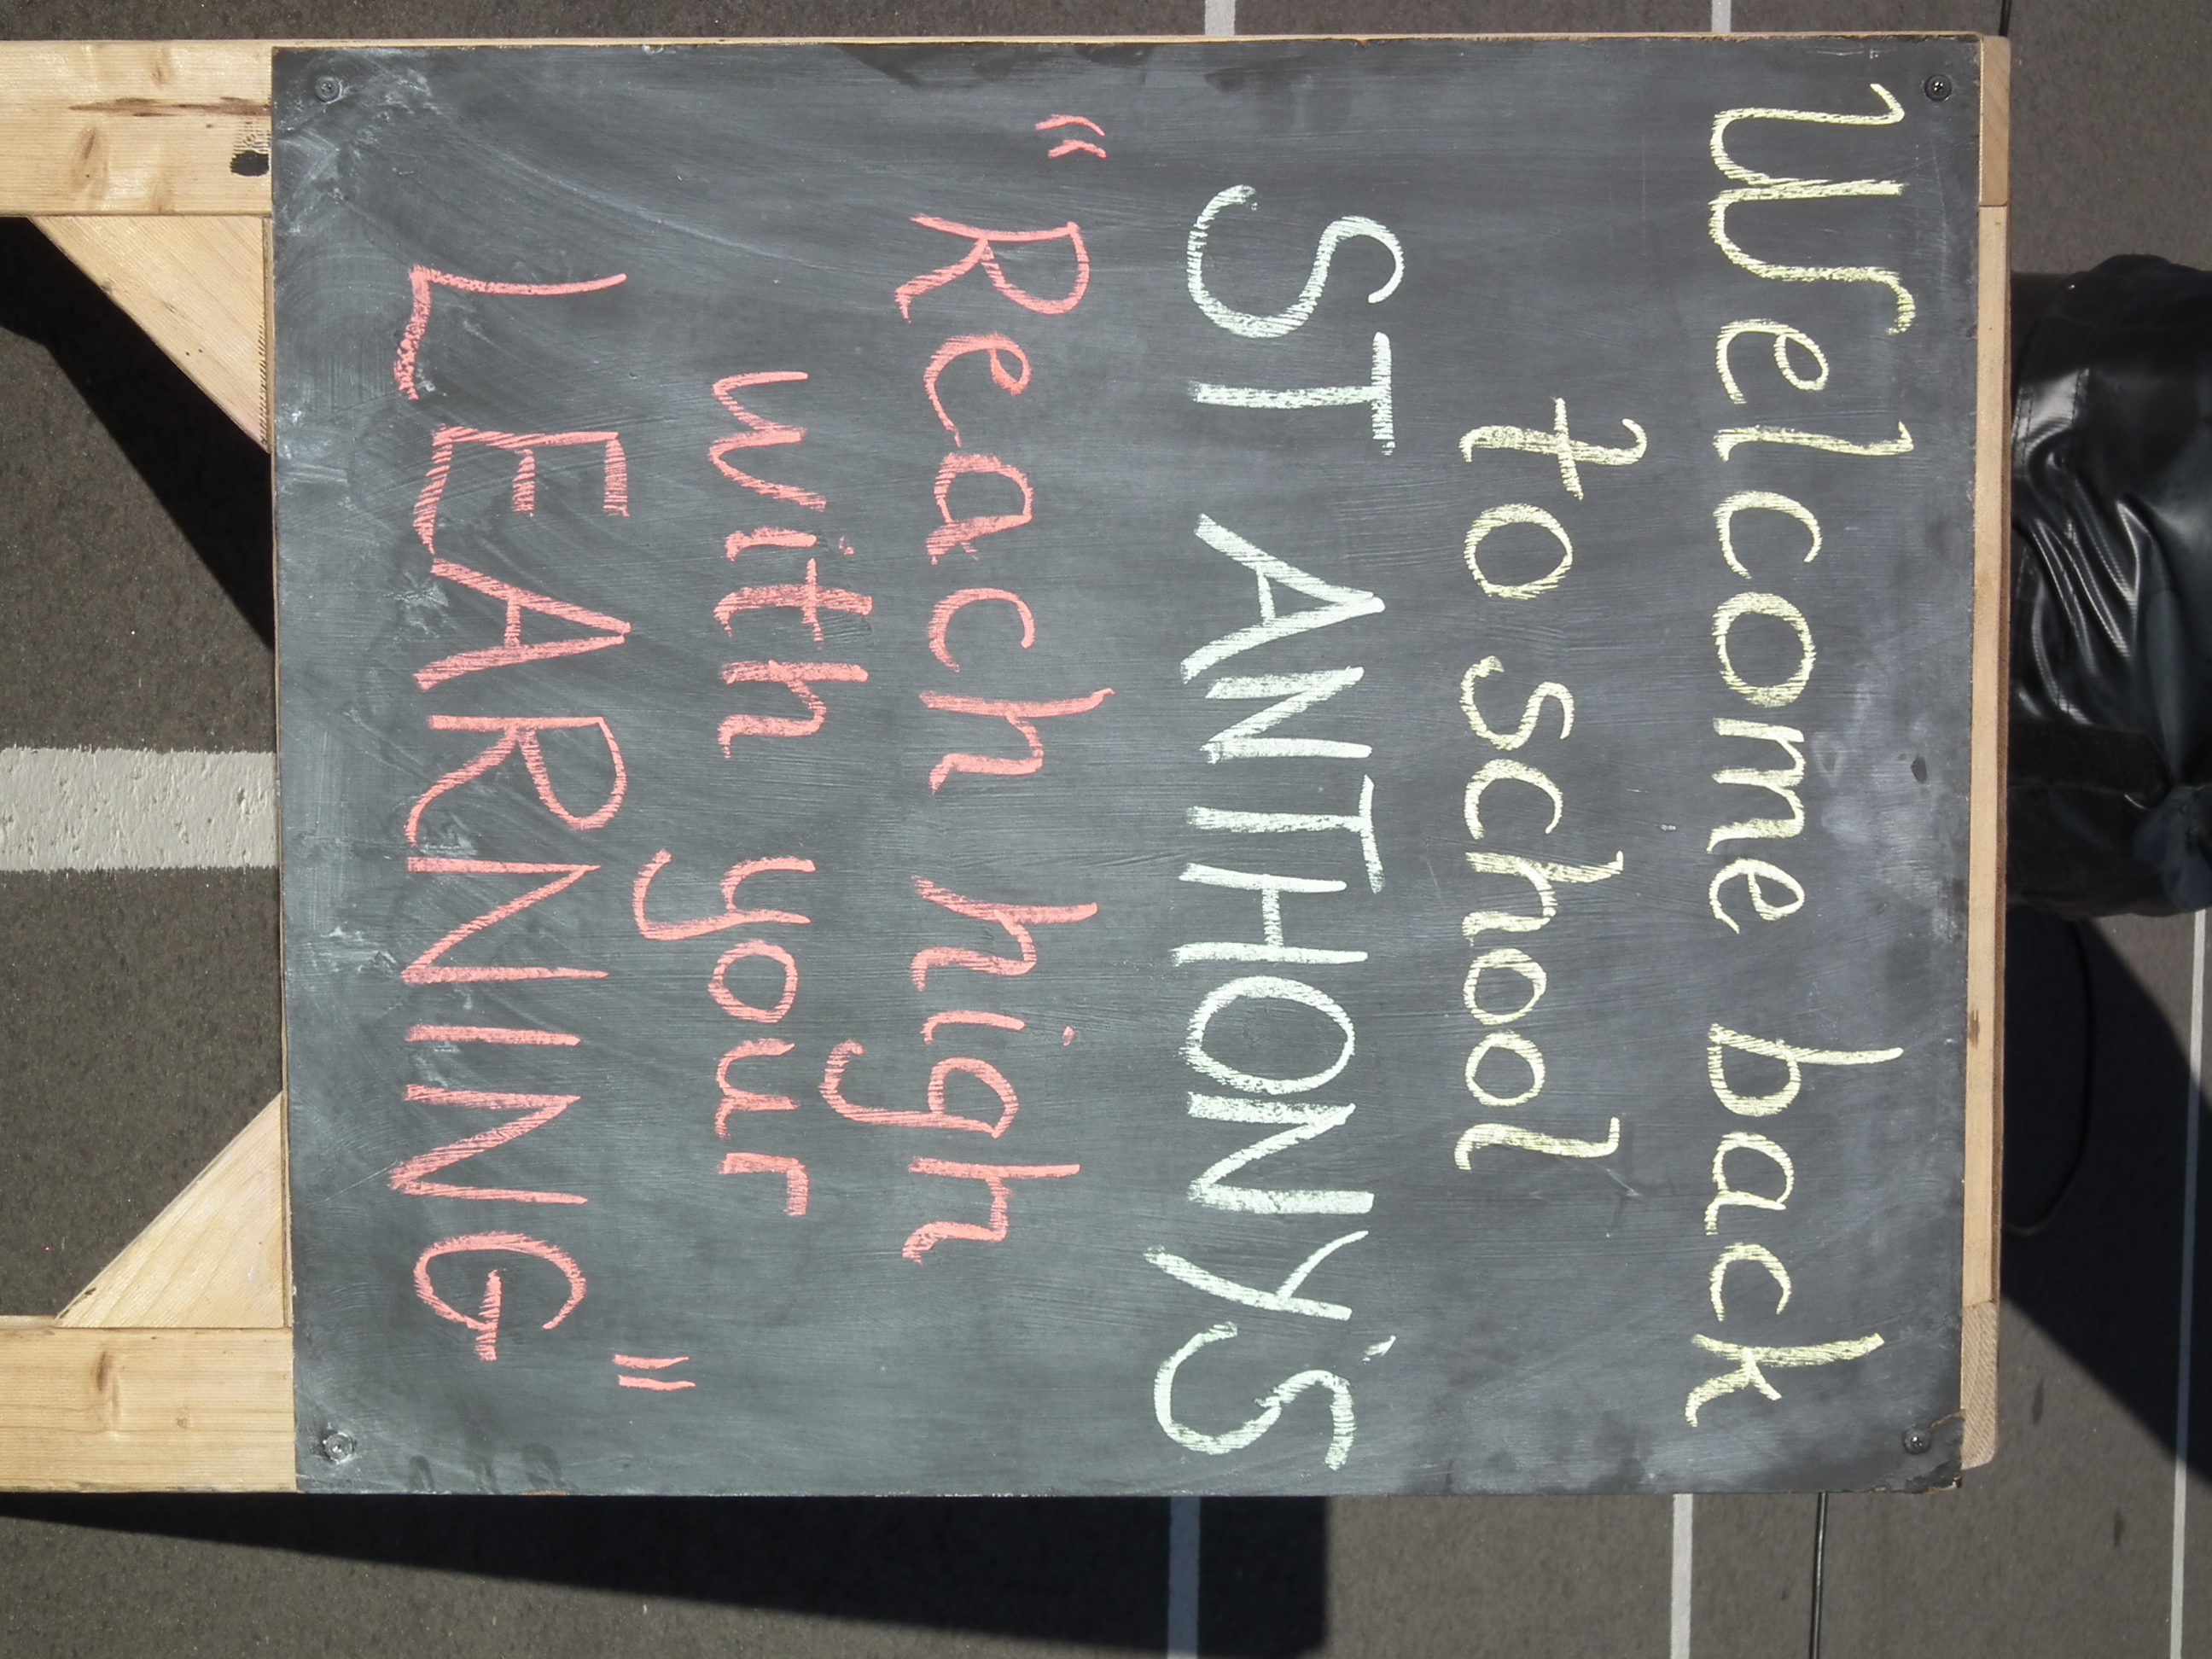 Welcome back
to school
ST ANTHONY'S
"Reach high
with your
LEARNING"